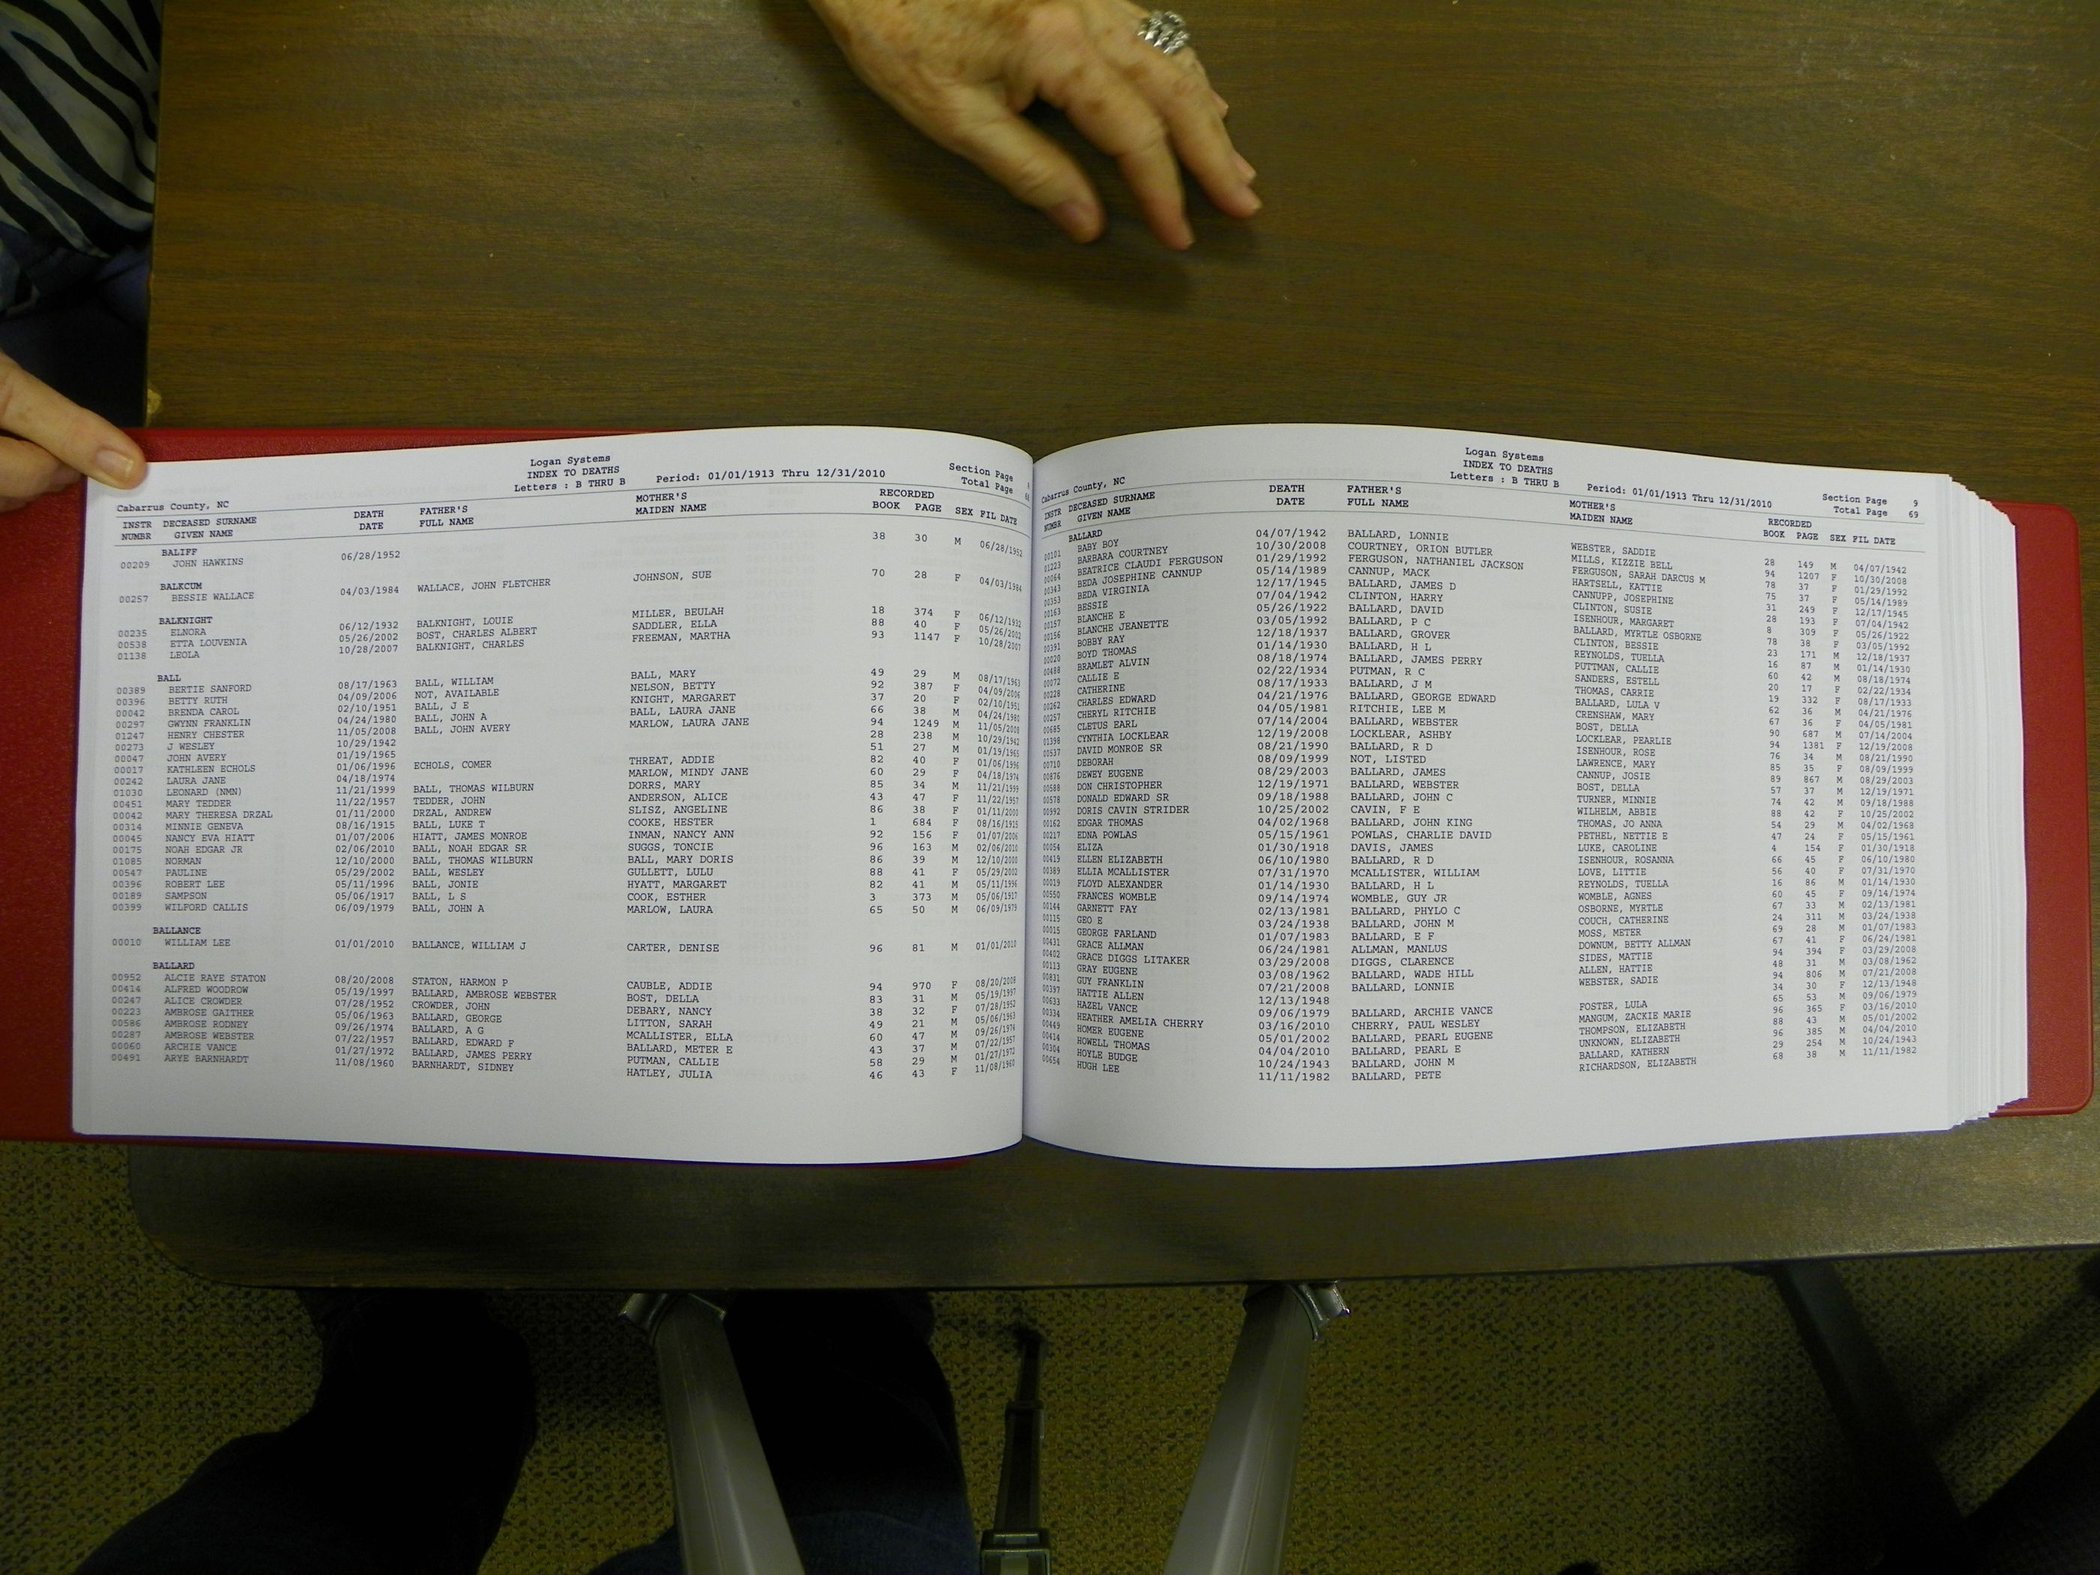 Logan Systems
INDEX TO DEATHS
Letters : B THRU B Period: 01/01/1913 Thru 12/31/2010
Section Page
Total Page
Cabarrus County, NC
INSTR DECEASED SURNAME DEATH FATHER'S MOTHER'S RECORDED
NUMBR GIVEN NAME DATE FULL NAME MAIDEN NAME BOOK PAGE SEX FIL DATE
BALIFF
00209 JOHN HAWKINS 06/28/1952 38 30 M 06/28/1952
BALKCUM
00257 BESSIE WALLACE 04/03/1984 WALLACE, JOHN FLETCHER JOHNSON, SUE 70 28 F 04/03/1984
BALKNIGHT
00235 ELNORA 06/12/1932 BALKNIGHT, LOUIE MILLER, BEULAH 18 374 F 06/12/1932
00538 ETTA LOUVENIA 05/26/2002 BOST, CHARLES ALBERT SADDLER, ELLA 88 40 F 05/26/2002
01138 LEOLA 10/28/2007 BALKNIGHT, CHARLES FREEMAN, MARTHA 93 1147 F 10/28/2007
BALL
00389 BERTIE SANFORD 08/17/1963 BALL, WILLIAM BALL, MARY 49 29 M 08/17/1963
00396 BETTY RUTH 04/09/2006 NOT, AVAILABLE NELSON, BETTY 92 387 F 04/09/2006
00042 BRENDA CAROL 02/10/1951 BALL, J E KNIGHT, MARGARET 37 20 F 02/10/1951
00297 GWYNN FRANKLIN 04/24/1980 BALL, JOHN A BALL, LAURA JANE 66 38 M 04/24/1980
01247 HENRY CHESTER 11/05/2008 BALL, JOHN AVERY MARLOW, LAURA JANE 94 1249 M 11/05/2008
00273 J WESLEY 10/29/1942 28 238 M 10/29/1942
00047 JOHN AVERY 01/19/1965 51 27 M 01/19/1965
00017 KATHLEEN ECHOLS 01/06/1996 ECHOLS, COMER THREAT, ADDIE 82 40 F 01/06/1996
00242 LAURA JANE 04/18/1974 MARLOW, MINDY JANE 60 29 F 04/18/1974
01030 LEONARD (NMN) 11/21/1999 BALL, THOMAS WILBURN DORRS, MARY 85 34 M 11/21/1999
00451 MARY TEDDER 11/22/1957 TEDDER, JOHN ANDERSON, ALICE 43 47 F 11/22/1957
00042 MARY THERESA DRZAL 01/11/2000 DRZAL, ANDREW SLISZ, ANGELINE 86 38 F 01/11/2000
00314 MINNIE GENEVA 08/16/1915 BALL, LUKE T COOKE, HESTER 1 684 F 08/16/1915
00045 NANCY EVA HIATT 01/07/2006 HIATT, JAMES MONROE INMAN, NANCY ANN 92 156 F 01/07/2006
00175 NOAH EDGAR JR 02/06/2010 BALL, NOAH EDGAR SR SUGGS, TONCIE 96 163 M 02/06/2010
01085 NORMAN 12/10/2000 BALL, THOMAS WILBURN BALL, MARY DORIS 86 39 M 12/10/2000
00547 PAULINE 05/29/2002 BALL, WESLEY GULLETT, LULU 88 41 F 05/29/2002
00396 ROBERT LEE 05/11/1996 BALL, JONIE HYATT, MARGARET 82 41 M 05/11/1996
00189 SAMPSON 05/06/1917 BALL, L S COOK, ESTHER 3 373 M 05/06/1917
00399 WILFORD CALLIS 06/09/1979 BALL, JOHN A MARLOW, LAURA 65 50 M 06/09/1979
BALLANCE
00010 WILLIAM LEE 01/01/2010 BALLANCE, WILLIAM J CARTER, DENISE 96 81 M 01/01/2010
BALLARD
00952 ALCIE RAYE STATON 08/20/2008 STATON, HARMON P CAUBLE, ADDIE 94 970 F 08/20/2008
00414 ALFRED WOODROW 05/19/1997 BALLARD, AMBROSE WEBSTER BOST, DELLA 83 31 M 05/19/1997
00247 ALICE CROWDER 07/28/1952 CROWDER, JOHN DEBARY, NANCY 38 32 F 07/28/1952
00223 AMBROSE GAITHER 05/06/1963 BALLARD, GEORGE LITTON, SARAH 49 21 M 05/06/1963
00586 AMBROSE RODNEY 09/26/1974 BALLARD, A G MCALLISTER, ELLA 60 47 M 09/26/1974
00287 AMBROSE WEBSTER 07/22/1957 BALLARD, EDWARD F BALLARD, METER E 43 37 M 07/22/1957
00060 ARCHIE VANCE 01/27/1972 BALLARD, JAMES PERRY PUTMAN, CALLIE 58 29 M 01/27/1972
00491 ARYE BARNHARDT 11/08/1960 BARNHARDT, SIDNEY HATLEY, JULIA 46 43 F 11/08/1960
Logan Systems
INDEX TO DEATHS
Letters : B THRU B Period: 01/01/1913 Thru 12/31/2010
Section Page 9
Total Page 69
Cabarrus County, NC
INSTR DECEASED SURNAME DEATH FATHER'S MOTHER'S RECORDED
NUMBR GIVEN NAME DATE FULL NAME MAIDEN NAME BOOK PAGE SEX FIL DATE
BALLARD
00101 BABY BOY 04/07/1942 BALLARD, LONNIE WEBSTER, SADDIE 28 149 M 04/07/1942
01223 BARBARA COURTNEY 10/30/2008 COURTNEY, ORION BUTLER MILLS, KIZZIE BELL 94 1207 F 10/30/2008
00064 BEATRICE CLAUDI FERGUSON 01/29/1992 FERGUSON, NATHANIEL JACKSON FERGUSON, SARAH DARCUS M 78 37 F 01/29/1992
00343 BEDA JOSEPHINE CANNUP 05/14/1989 CANNUP, MACK HARTSELL, KATTIE 75 37 F 05/14/1989
00353 BEDA VIRGINIA 12/17/1945 BALLARD, JAMES D CANNUPP, JOSEPHINE 31 249 F 12/17/1945
00163 BESSIE 07/04/1942 CLINTON, HARRY CLINTON, SUSIE 28 193 F 07/04/1942
00157 BLANCHE E 05/26/1922 BALLARD, DAVID ISENHOUR, MARGARET 8 309 F 05/26/1922
00156 BLANCHE JEANETTE 03/05/1992 BALLARD, P C BALLARD, MYRTLE OSBORNE 78 38 F 03/05/1992
00391 BOBBY RAY 12/18/1937 BALLARD, GROVER CLINTON, BESSIE 23 171 M 12/18/1937
00020 BOYD THOMAS 01/14/1930 BALLARD, H L REYNOLDS, TUELLA 16 87 M 01/14/1930
00488 BRAMLET ALVIN 08/18/1974 BALLARD, JAMES PERRY SANDERS, ESTELL 60 42 M 08/18/1974
00072 CALLIE E 02/22/1934 PUTMAN, R C PUTTMAN, CALLIE 20 17 F 02/22/1934
00228 CATHERINE 08/17/1933 BALLARD, J M THOMAS, CARRIE 19 332 F 08/17/1933
00262 CHARLES EDWARD 04/21/1976 BALLARD, GEORGE EDWARD BALLARD, LULA V 62 36 M 04/21/1976
00257 CHERYL RITCHIE 04/05/1981 RITCHIE, LEE M CRENSHAW, MARY 67 36 F 04/05/1981
CLETUS EARL 07/14/2004 BALLARD, WEBSTER BOST, DELLA 90 687 M 07/14/2004
01398 CYNTHIA LOCKLEAR 12/19/2008 LOCKLEAR, ASHBY LOCKLEAR, PEARLIE 94 1381 F 12/19/2008
00537 DAVID MONROE SR 08/21/1990 BALLARD, R D ISENHOUR, ROSE 76 34 M 08/21/1990
00710 DEBORAH 08/09/1999 NOT, LISTED LAWRENCE, MARY 85 35 F 08/09/1999
00876 DEWEY EUGENE 08/29/2003 BALLARD, JAMES CANNUP, JOSIE 89 867 M 08/29/2003
00588 DON CHRISTOPHER 12/19/1971 BALLARD, WEBSTER BOST, DELLA 57 37 M 12/19/1971
00578 DONALD EDWARD SR 09/18/1988 BALLARD, JOHN C TURNER, MINNIE 74 42 M 09/18/1988
00992 DORIS CAVIN STRIDER 10/25/2002 CAVIN, F E WILHELM, ABBIE 88 42 F 10/25/2002
00162 EDGAR THOMAS 04/02/1968 BALLARD, JOHN KING THOMAS, JO ANNA 54 29 M 04/02/1968
00217 EDNA POWLAS 05/15/1961 POWLAS, CHARLIE DAVID PETHEL, NETTIE E 47 24 F 05/15/1961
00054 ELIZA 01/30/1918 DAVIS, JAMES LUKE, CAROLINE 4 154 F 01/30/1918
00419 ELLEN ELIZABETH 06/10/1980 BALLARD, R D ISENHOUR, ROSANNA 66 45 F 06/10/1980
00389 ELLIA MCALLISTER 07/31/1970 MCALLISTER, WILLIAM LOVE, LITTIE 56 40 F 07/31/1970
00019 FLOYD ALEXANDER 01/14/1930 BALLARD, H L REYNOLDS, TUELLA 16 86 M 01/14/1930
00550 FRANCES WOMBLE 09/14/1974 WOMBLE, GUY JR WOMBLE, AGNES 60 45 F 09/14/1974
00144 GARNETT FAY 02/13/1981 BALLARD, PHYLO C OSBORNE, MYRTLE 67 33 M 02/13/1981
00115 GEO E 03/24/1938 BALLARD, JOHN M COUCH, CATHERINE 24 311 M 03/24/1938
00015 GEORGE FARLAND 01/07/1983 BALLARD, E F MOSS, METER 69 28 M 01/07/1983
00431 GRACE ALLMAN 06/24/1981 ALLMAN, MANLUS DOWNUM, BETTY ALLMAN 67 41 F 06/24/1981
00402 GRACE DIGGS LITAKER 03/29/2008 DIGGS, CLARENCE SIDES, MATTIE 94 394 F 03/29/2008
00113 GRAY EUGENE 03/08/1962 BALLARD, WADE HILL ALLEN, HATTIE 48 31 M 03/08/1962
00831 GUY FRANKLIN 07/21/2008 BALLARD, LONNIE WEBSTER, SADIE 94 806 M 07/21/2008
00397 HATTIE ALLEN 12/13/1948 34 30 F 12/13/1948
00633 HAZEL VANCE 09/06/1979 BALLARD, ARCHIE VANCE FOSTER, LULA 65 53 M 09/06/1979
00334 HEATHER AMELIA CHERRY 03/16/2010 CHERRY, PAUL WESLEY MANGUM, ZACKIE MARIE 96 365 F 03/16/2010
00449 HOMER EUGENE 05/01/2002 BALLARD, PEARL EUGENE THOMPSON, ELIZABETH 88 43 M 05/01/2002
00414 HOWELL THOMAS 04/04/2010 BALLARD, PEARL E UNKNOWN, ELIZABETH 96 385 M 04/04/2010
00304 HOYLE BUDGE 10/24/1943 BALLARD, JOHN M BALLARD, KATHERN 29 254 M 10/24/1943
00654 HUGH LEE 11/11/1982 BALLARD, PETE RICHARDSON, ELIZABETH 68 38 M 11/11/1982